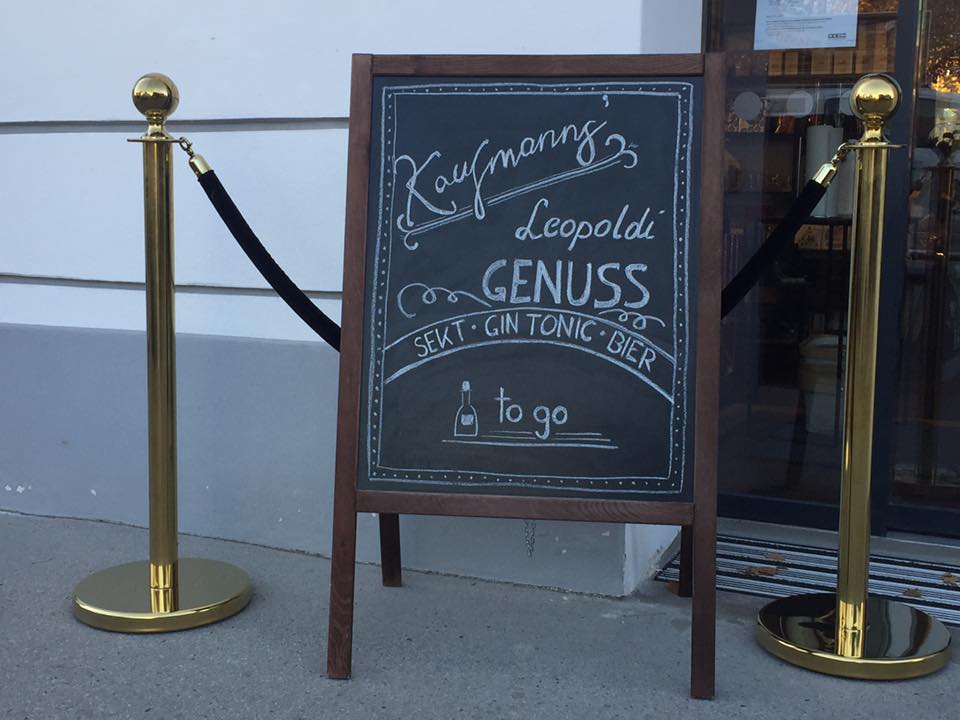 Kaufmanns'
Leopoldi
GENUSS
SEKT · GIN TONIC · BIER
to go